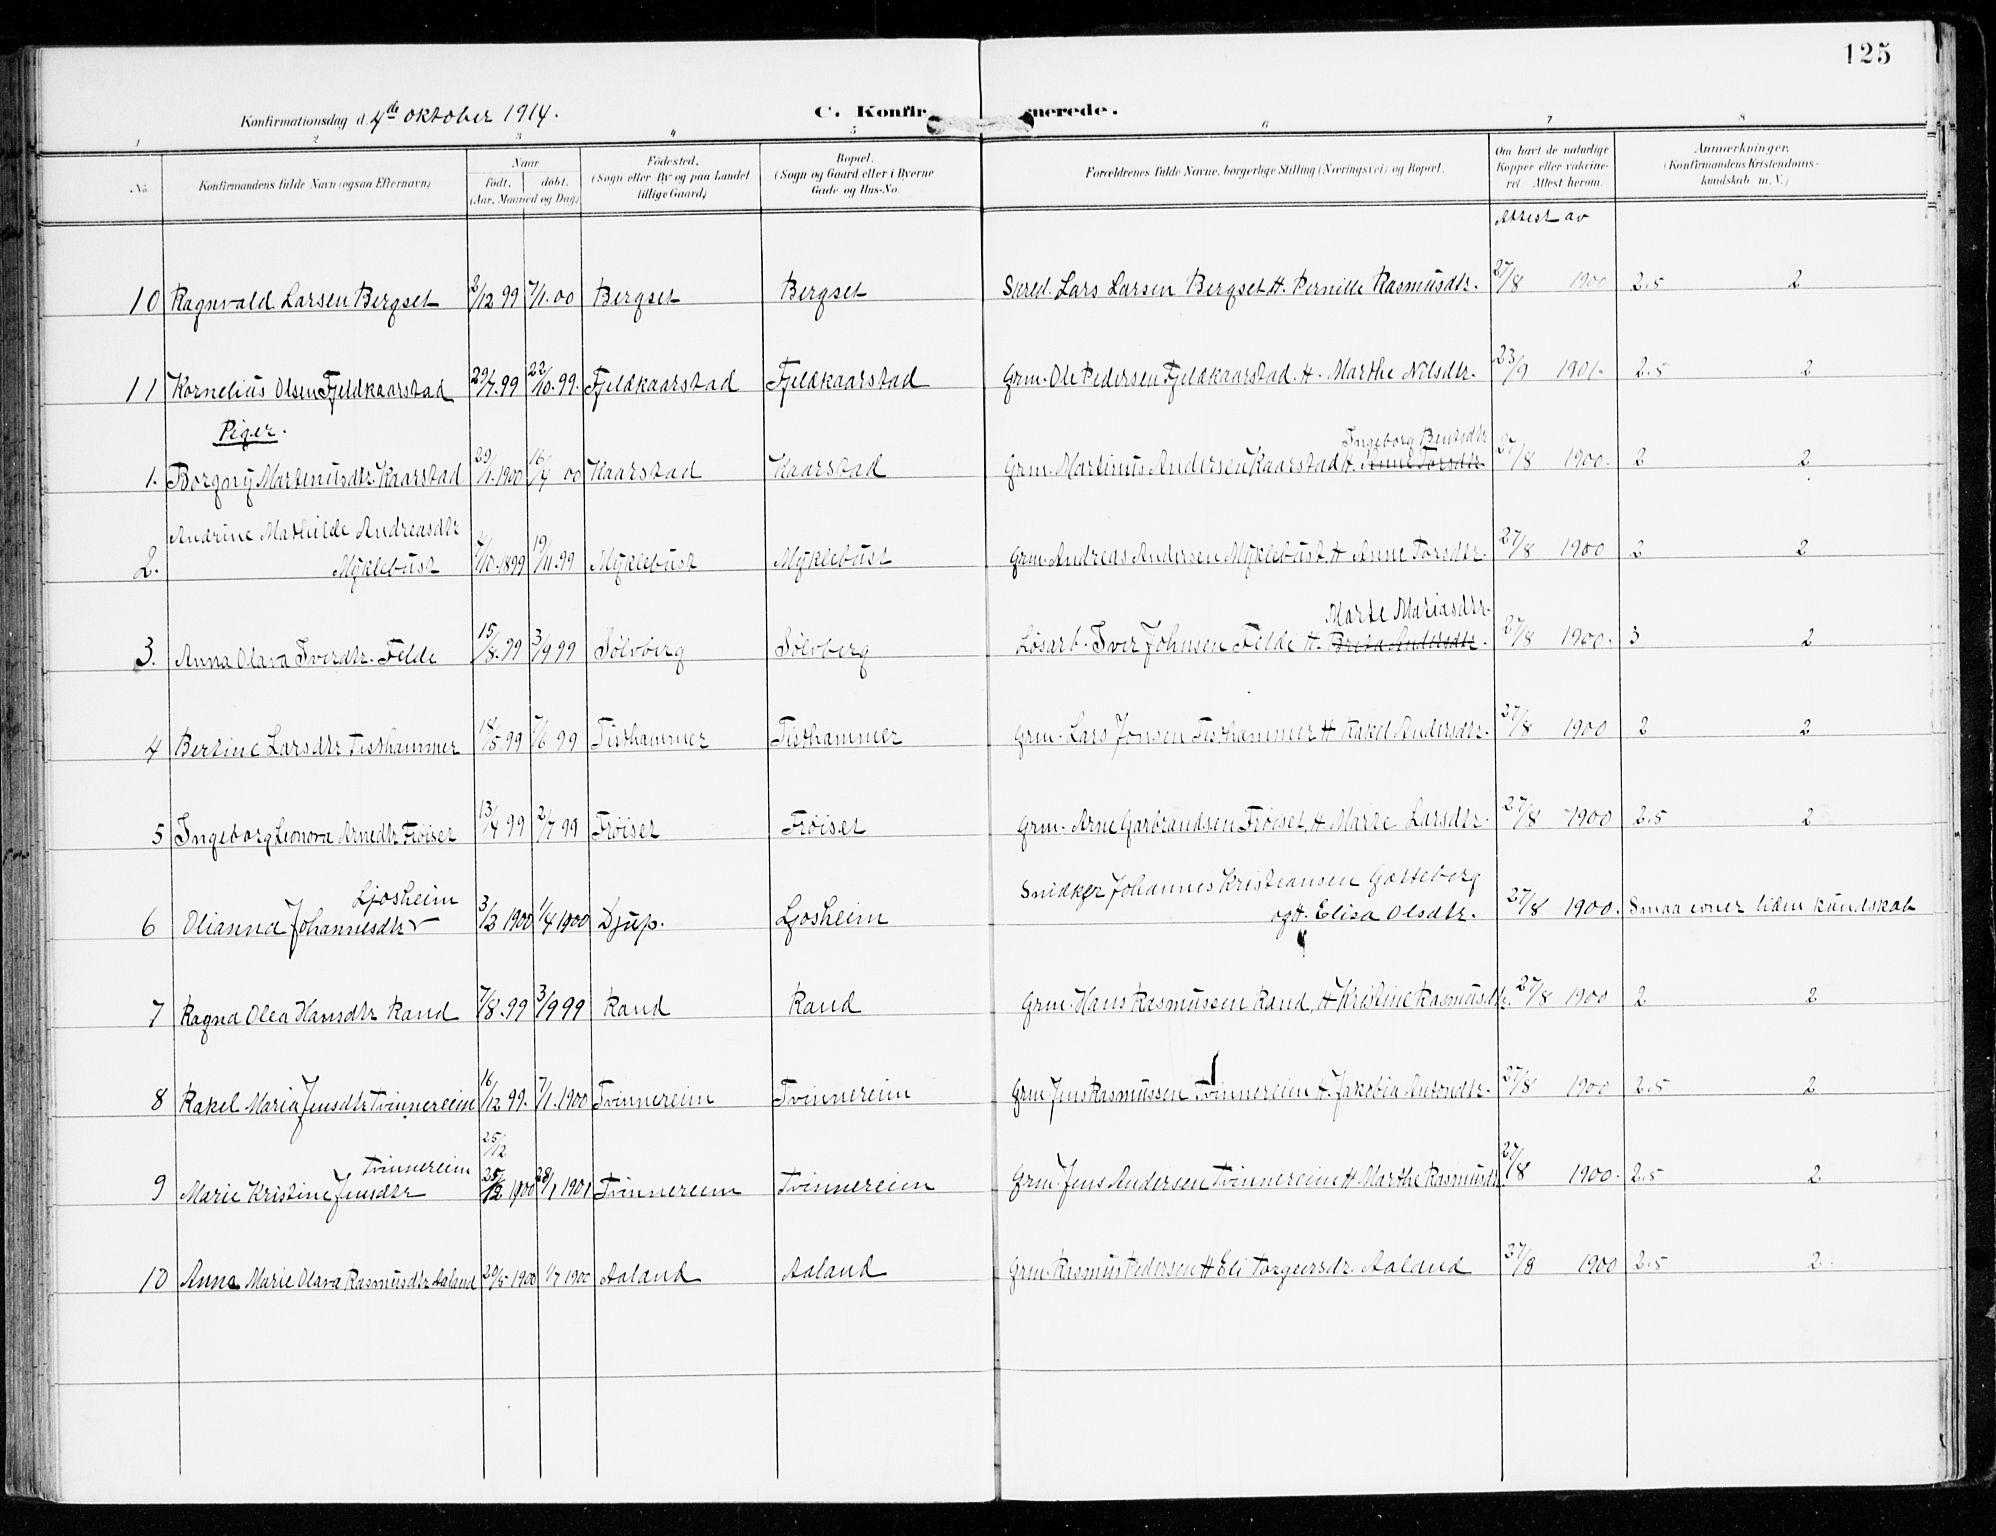 125
Konfirmationsdag d. 4de oktober 1914.
C. Konfirmerede.
1 2 3 4 5 6 7 8
No. Konfirmandens fulde Navn (ogsaa Efternavn) Naar født, døbt. (Aar, Maaned og Dag) Fødested. (Sogn eller By og paa Landet tillige Gaard) Bopæl. (Sogn og Gaard eller i Byerne Gade og Hus-No. Forældrenes fulde Navne, borgerlige Stilling (Næringsvei) og Bopæl. Om havt de naturlige Kopper eller vaccineret. Attest herom. Anmærkninger. (Konfirmandens Kristendomskundskab m. V.)
Attest av
10 Ragnvald Larsen Bergset 2/12 99 7/1.00 Bergset Bergset Skred. Lars Larsen Bergset H. Pernille Rasmusdtr. 27/8 1900 2.5 2
11 Kornelius Olsen Fjeldkaarstad 29/7.99 22/10.99. Fjeldkaarstad Fjeldkaarstad Grm. Ole Pedersen Fjeldkaarstad. H. Marthe Nilsdtr. 23/9 1901. 2.5 2
Piger.
Ingeborg Bentsdtr
1. Borgny Martinusdtr. Kaarstad 29/1.1900 16/4 00 Kaarstad Kaarstad Grm. Martinus Andersen Kaarstad H. Anne Torsdtr 27/8 1900. 2 2
Andrine Mathilde Andreasdtr
2. Myklebust 7/10.1899 19/11.99 Myklebust Myklebust Grm. Andreas Andersen Myklebust. H Anne Torsdtr. 27/8 1900 2 2
Marte Mariasdtr.
3. Anna Olava Iverdtr. Felde 15/8.99 3/9 99 Sølvberg Sølvberg Løsarb. Iver Johnsen Felde H. Breta Andersdtr. 27/8 1900. 3 2
4 Bertine Larsdtr Tisthammer 18/5 99 7/6 99 Tisthammer Tisthammer Grm. Lars Jonsen Tisthammer H Rakel Andersdtr. 27/8 1900 2 2
5 Ingeborg Leonora Arnedtr. Frøiset 13/4 99 2/7 99 Frøiset Frøiset Grm. Arne Garbrandsen Frøiset, H Marte Larsdtr. 27/8 1900 2.5 2
Ljosheim Snidker Johannes Kristiansen Gotteberg
6 Olianna Johannesdtr 3/3 1900 1/4 1900 Djup. Ljosheim og H. Elisa Olsdtr. 27/8 1900. Smaa evner liden kundskab
7 Ragna Olea Hansdtr Rand 7/8.99 3/9 99 Rand Rand Grm. Hans Rasmussen Rand, H Kristine Rasmusdtr. 27/8 1900 2 2
8 Rakel Maria Jensdtr Tvinnereim 16/12 99. 7/1.1900 Tvinnereim Tvinnereim Grm. Jens Rasmussen Tvinnereim H. Jakobia Antondtr. 27/8 1900 2.5 2
25/12
Tvinnereim
9 Marie Kristine Jensdtr 25/12 1900 28/1 1901 Tvinnereim Tvinnereim Grm. Jens Andersen Tvinnereim H Marthe Rasmusdtr. 27/8 1900. 2.5 2
10 Anna Marie Olava Rasmusdtr Aaland 20/5 1900 1/7 1900 Aaland Aaland Grm. Rasmus Pedersen H Eli Torgeersdr. Aaland 27/8 1900 2.5 2.